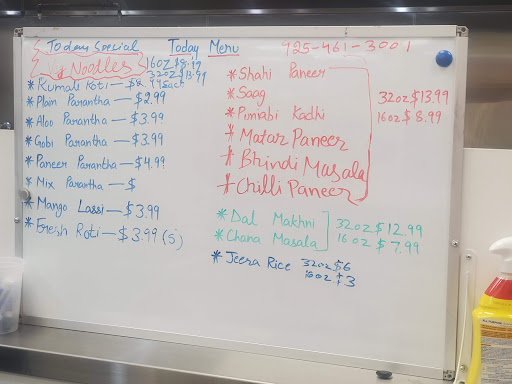 Today Special
Noodles
16oz $8.99
32oz $13.99
Today Menu
925-461-3001
* Rumali Roti — $2.99 each
* Plain Parantha — $2.99
* Aloo Parantha — $3.99
* Gobi Parantha — $3.99
* Paneer Parantha — $4.99
* Mix Parantha — $
* Mango Lassi — $3.99
* Fresh Roti — $3.99 (5)
* Shahi Paneer
* Saag
* Punjabi Kadhi
* Matar Paneer
* Bhindi Masala
* Chilli Paneer
32oz $13.99
16oz $8.99
* Dal Makhni
* Chana Masala
32oz $12.99
16oz $7.99
* Jeera Rice 32oz $6
16oz $3